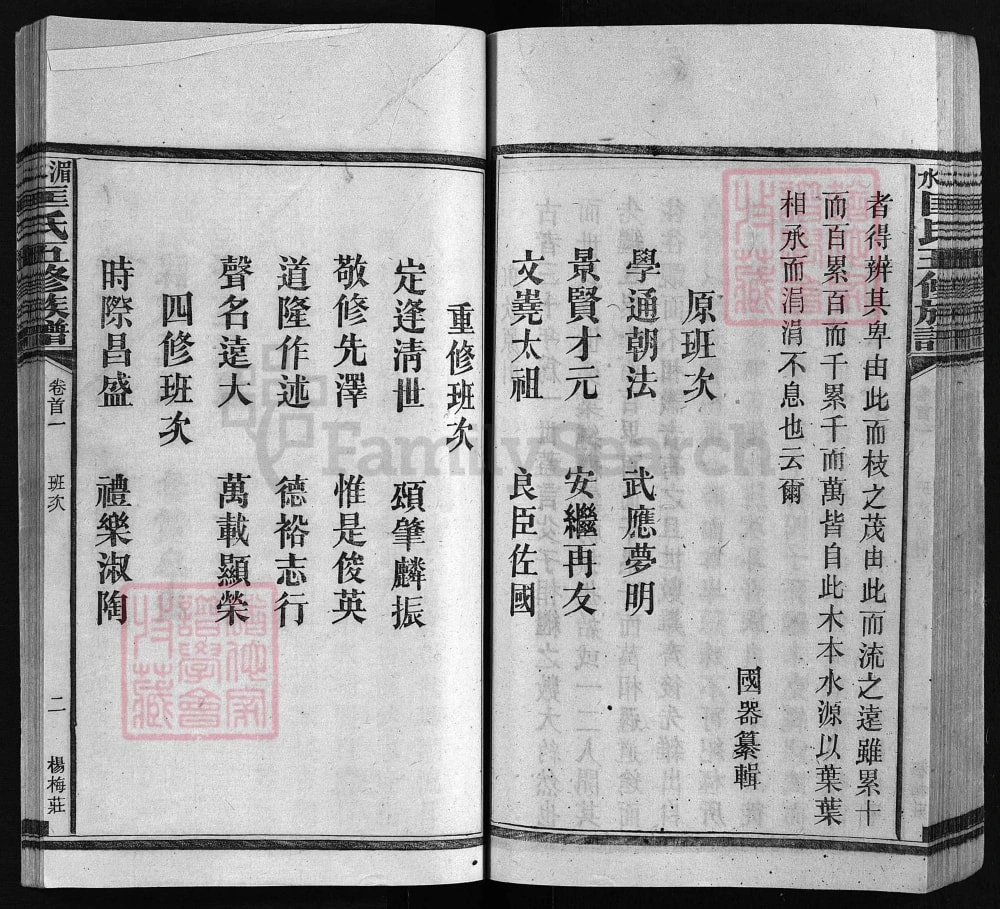 者得辨其卑由此而枝之茂由此而流之遠雖累十
而百累百而千累千而萬皆自此木本水源以葉葉
相承而涓涓不息也云爾
國器纂輯
原班次
學通朝法 武應夢明
景賢才元 安繼再友
文堯太祖 良臣佐國
重修班次
定逢清世 頌肇麟振
敬修先澤 惟是俊英
道隆作述 德裕志行
聲名遠大 萬載顯榮
四修班次
時際昌盛 禮樂淑陶
湄水匡氏五修族譜
卷首一
班次
二
楊梅莊
FamilySearch